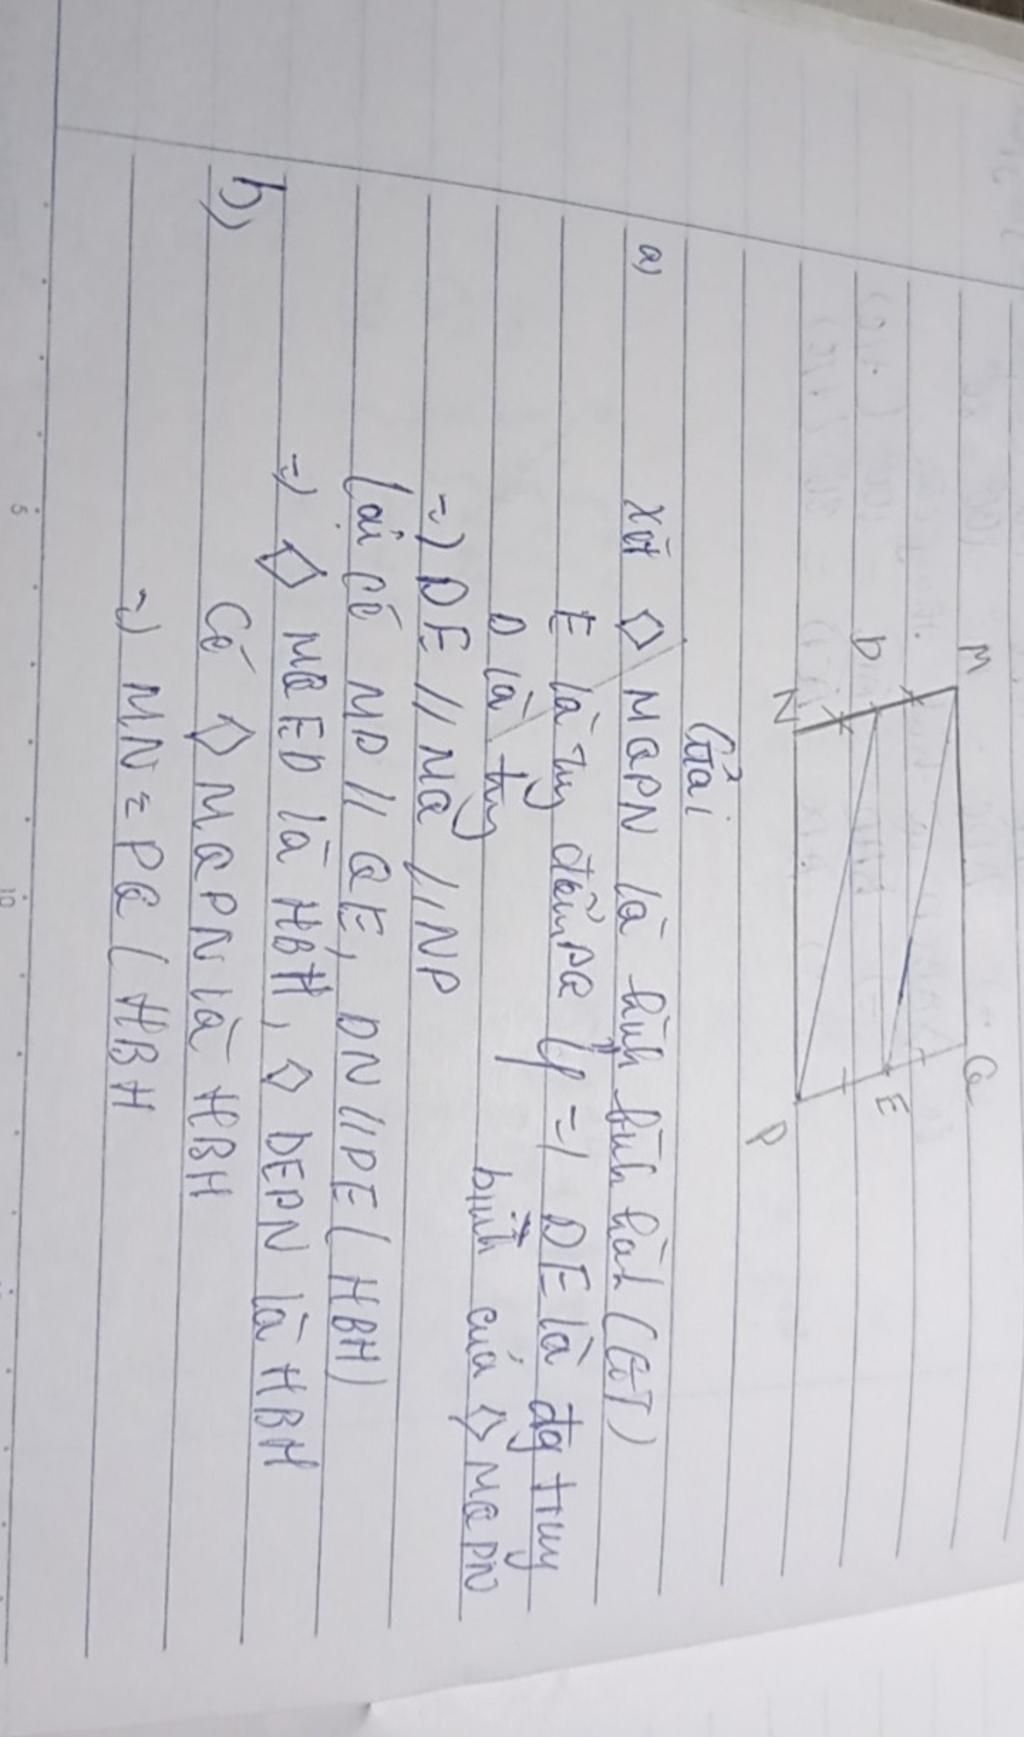 M Q
D E
N P
Giải
a) Xét ◇ MQPN là hình bình hàh (GT)
E là Tug điểm PQ => DE là đg trug
D là trug bình của ◇ MQPN
=> DE // MQ // NP
Lại có MD // QE, DN // PE (HBH)
=> ◇ MQED là HBH, ◇ DEPN là HBH
b) Có ◇ MQPN là HBH
=> MN = PQ ( HBH